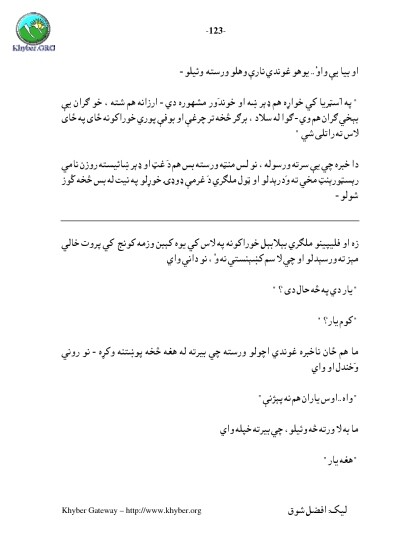 -123-
Khyber.ORG
او بيا يې واوٗ.. يوهو غوندې نارې وهلو ورسته وئيلو -
" په آسټريا کې خواړه هم ډېر ښه او خوندٓور مشهوره دي - ارزانه هم شته ، خو ګران يې
بيخي ګران هم وي - ګوا له سلاد ، برګر څخه تر چرغې او بوفې پورې خوراکونه ځای په ځای
لاس ته راتلی شي "
دا خبره چې يې سرته ورسوله ، نو لس منټه ورسته بس هم دٓغټ او ډېر ښائيسته روزن نامې
ريسټورېنټ مخې ته وٓدرېدلو او ټول ملګري دٓ غرمې ډوډۍ خوړلو په نيت له بس څخه کُوز
شولو -
زه او فليپينو ملګري بېلابېل خوراکونه په لاس کې يوه کېبن وزمه کونج کې پروت خالي
مېز ته ورسېدلو او چې لا سم کښېنستي نه وٗ ، نو داني واې
" يار دې په څه حال دی ؟ "
" کوم يار؟ "
ما هم ځان ناخبره غوندې اچولو ورسته چې بيرته له هغه څخه پوښتنه وکړه - نو رونې
وٓخندل او واې
" واه ..اوس ياران هم نه پېژنې "
ما به لا ورته څه وئيلو ، چې بيرته خپله واې
" هغه يار "
Khyber Gateway – http://www.khyber.org
ليک: افضل شوق